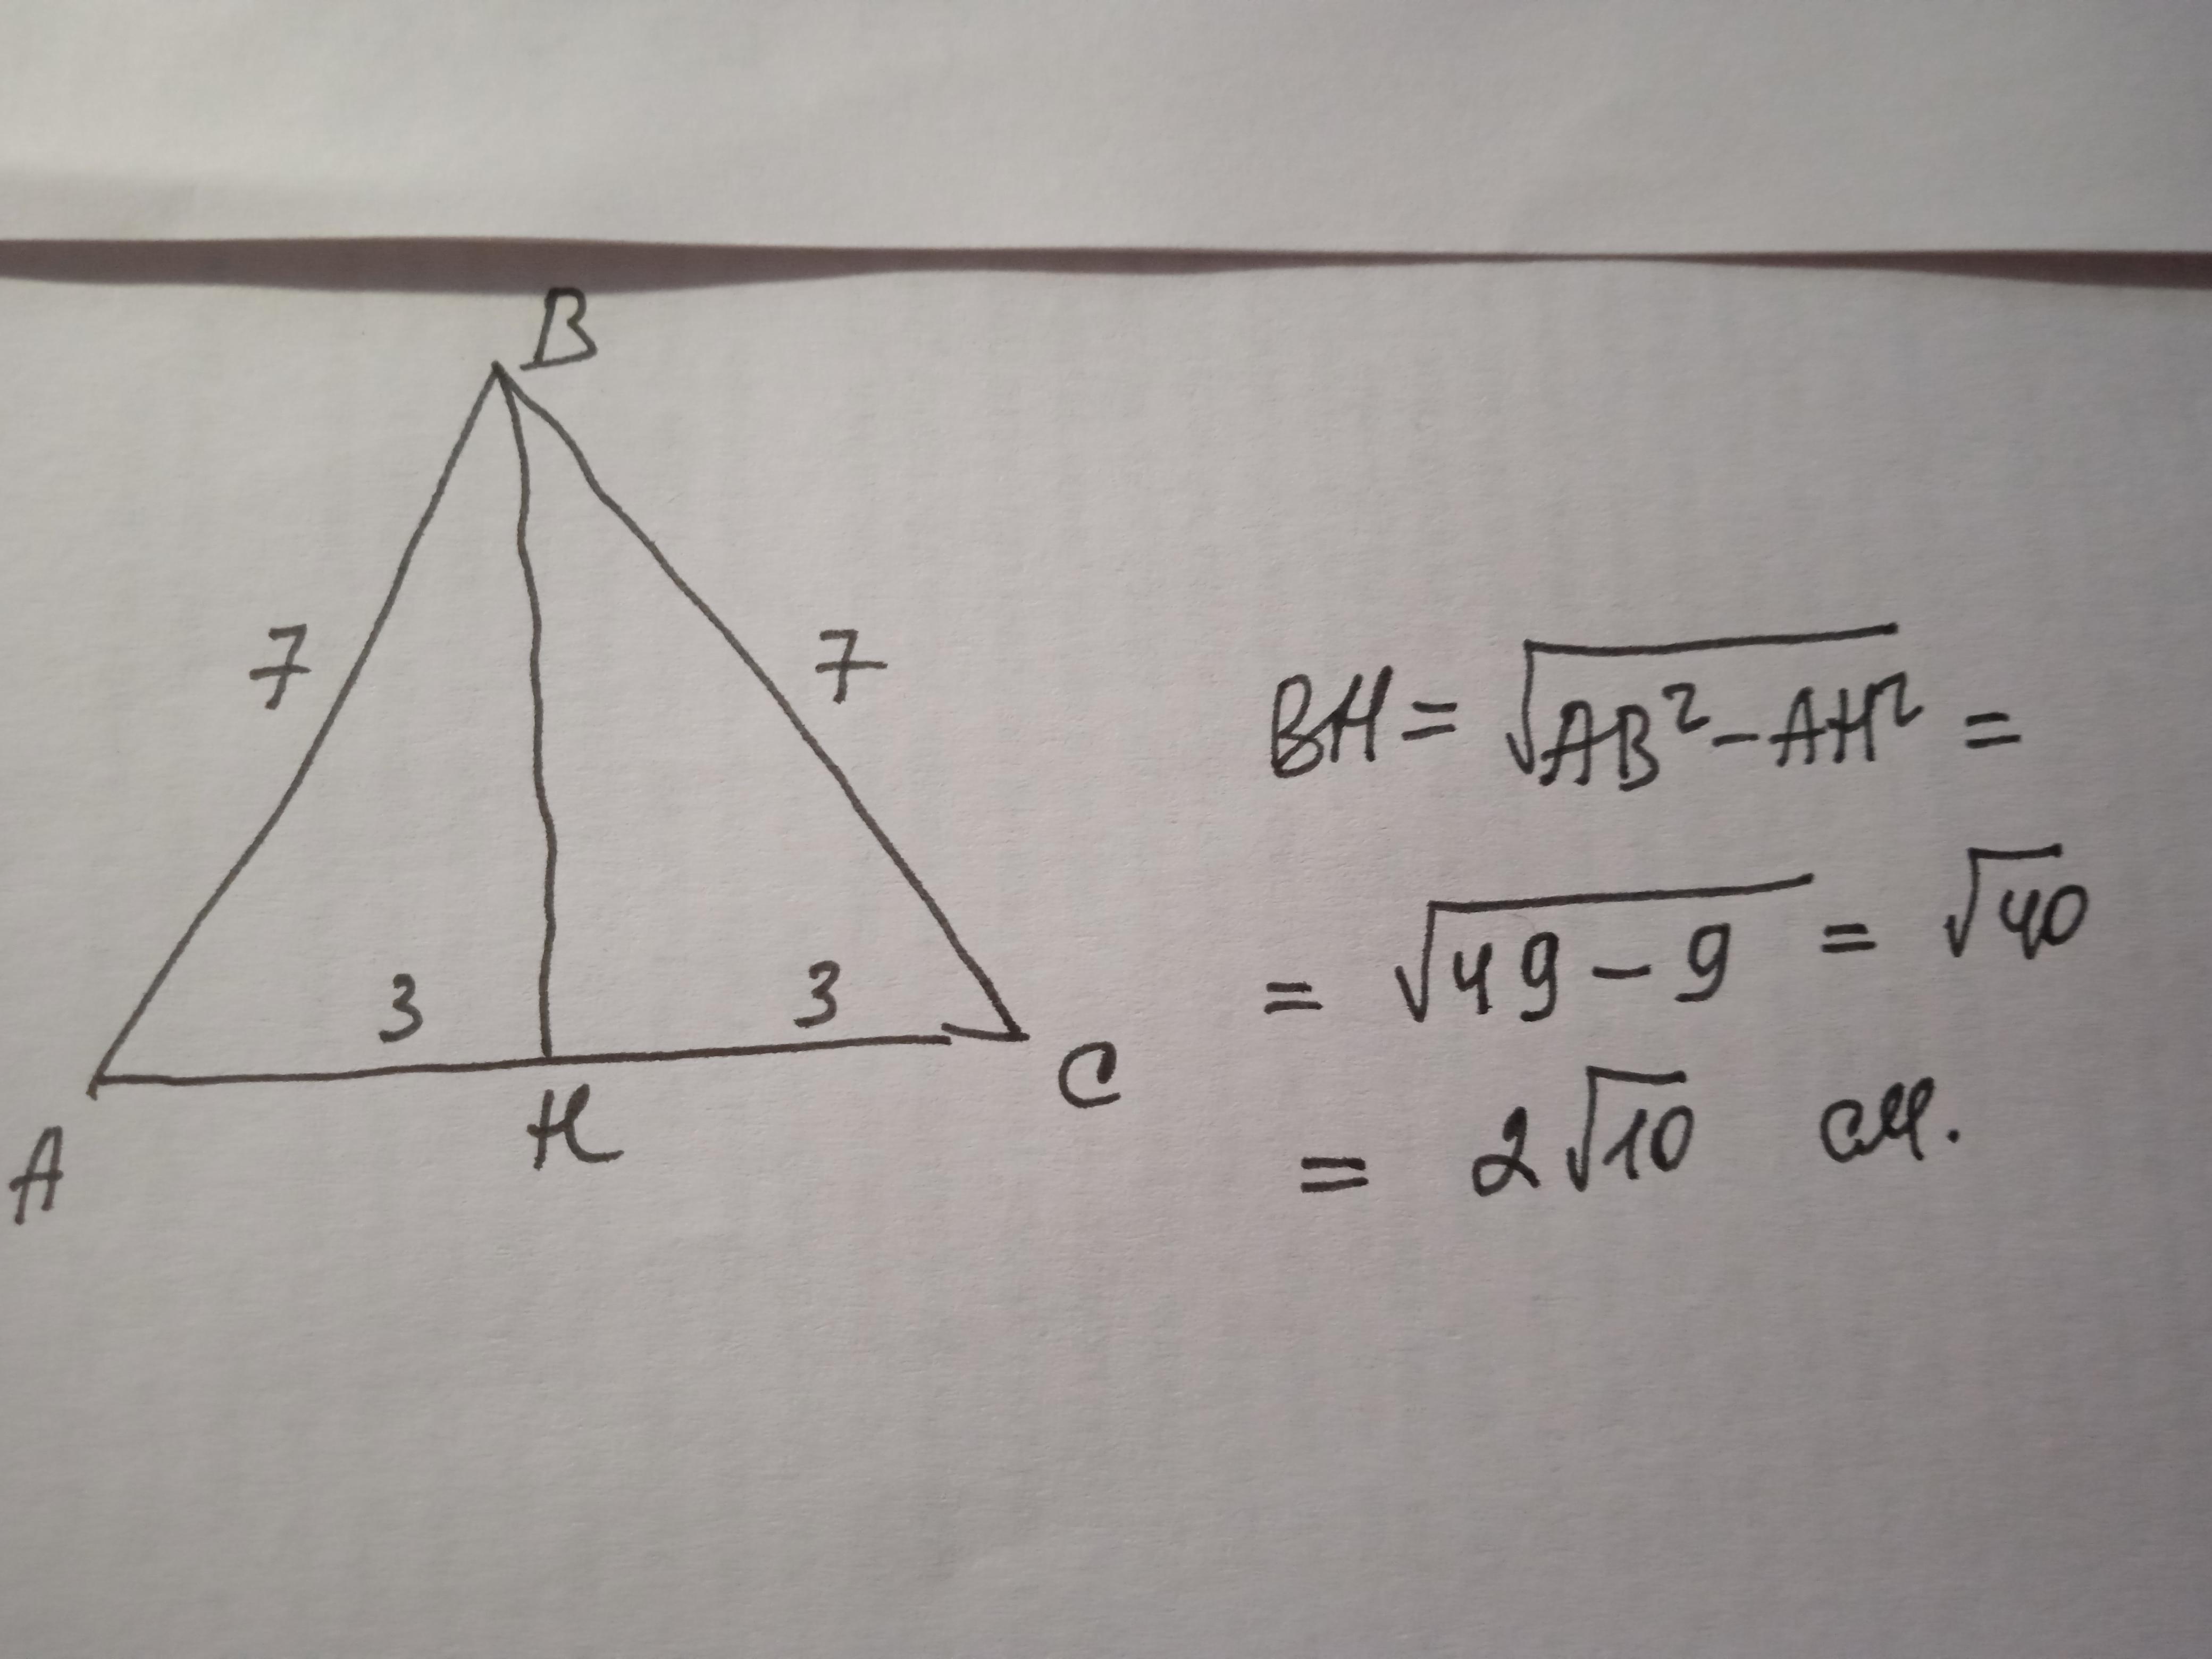 B
7
7
3
3
A
H
C
BH = √AB² – AH² =
= √49 – 9 = √40
= 2√10 см.